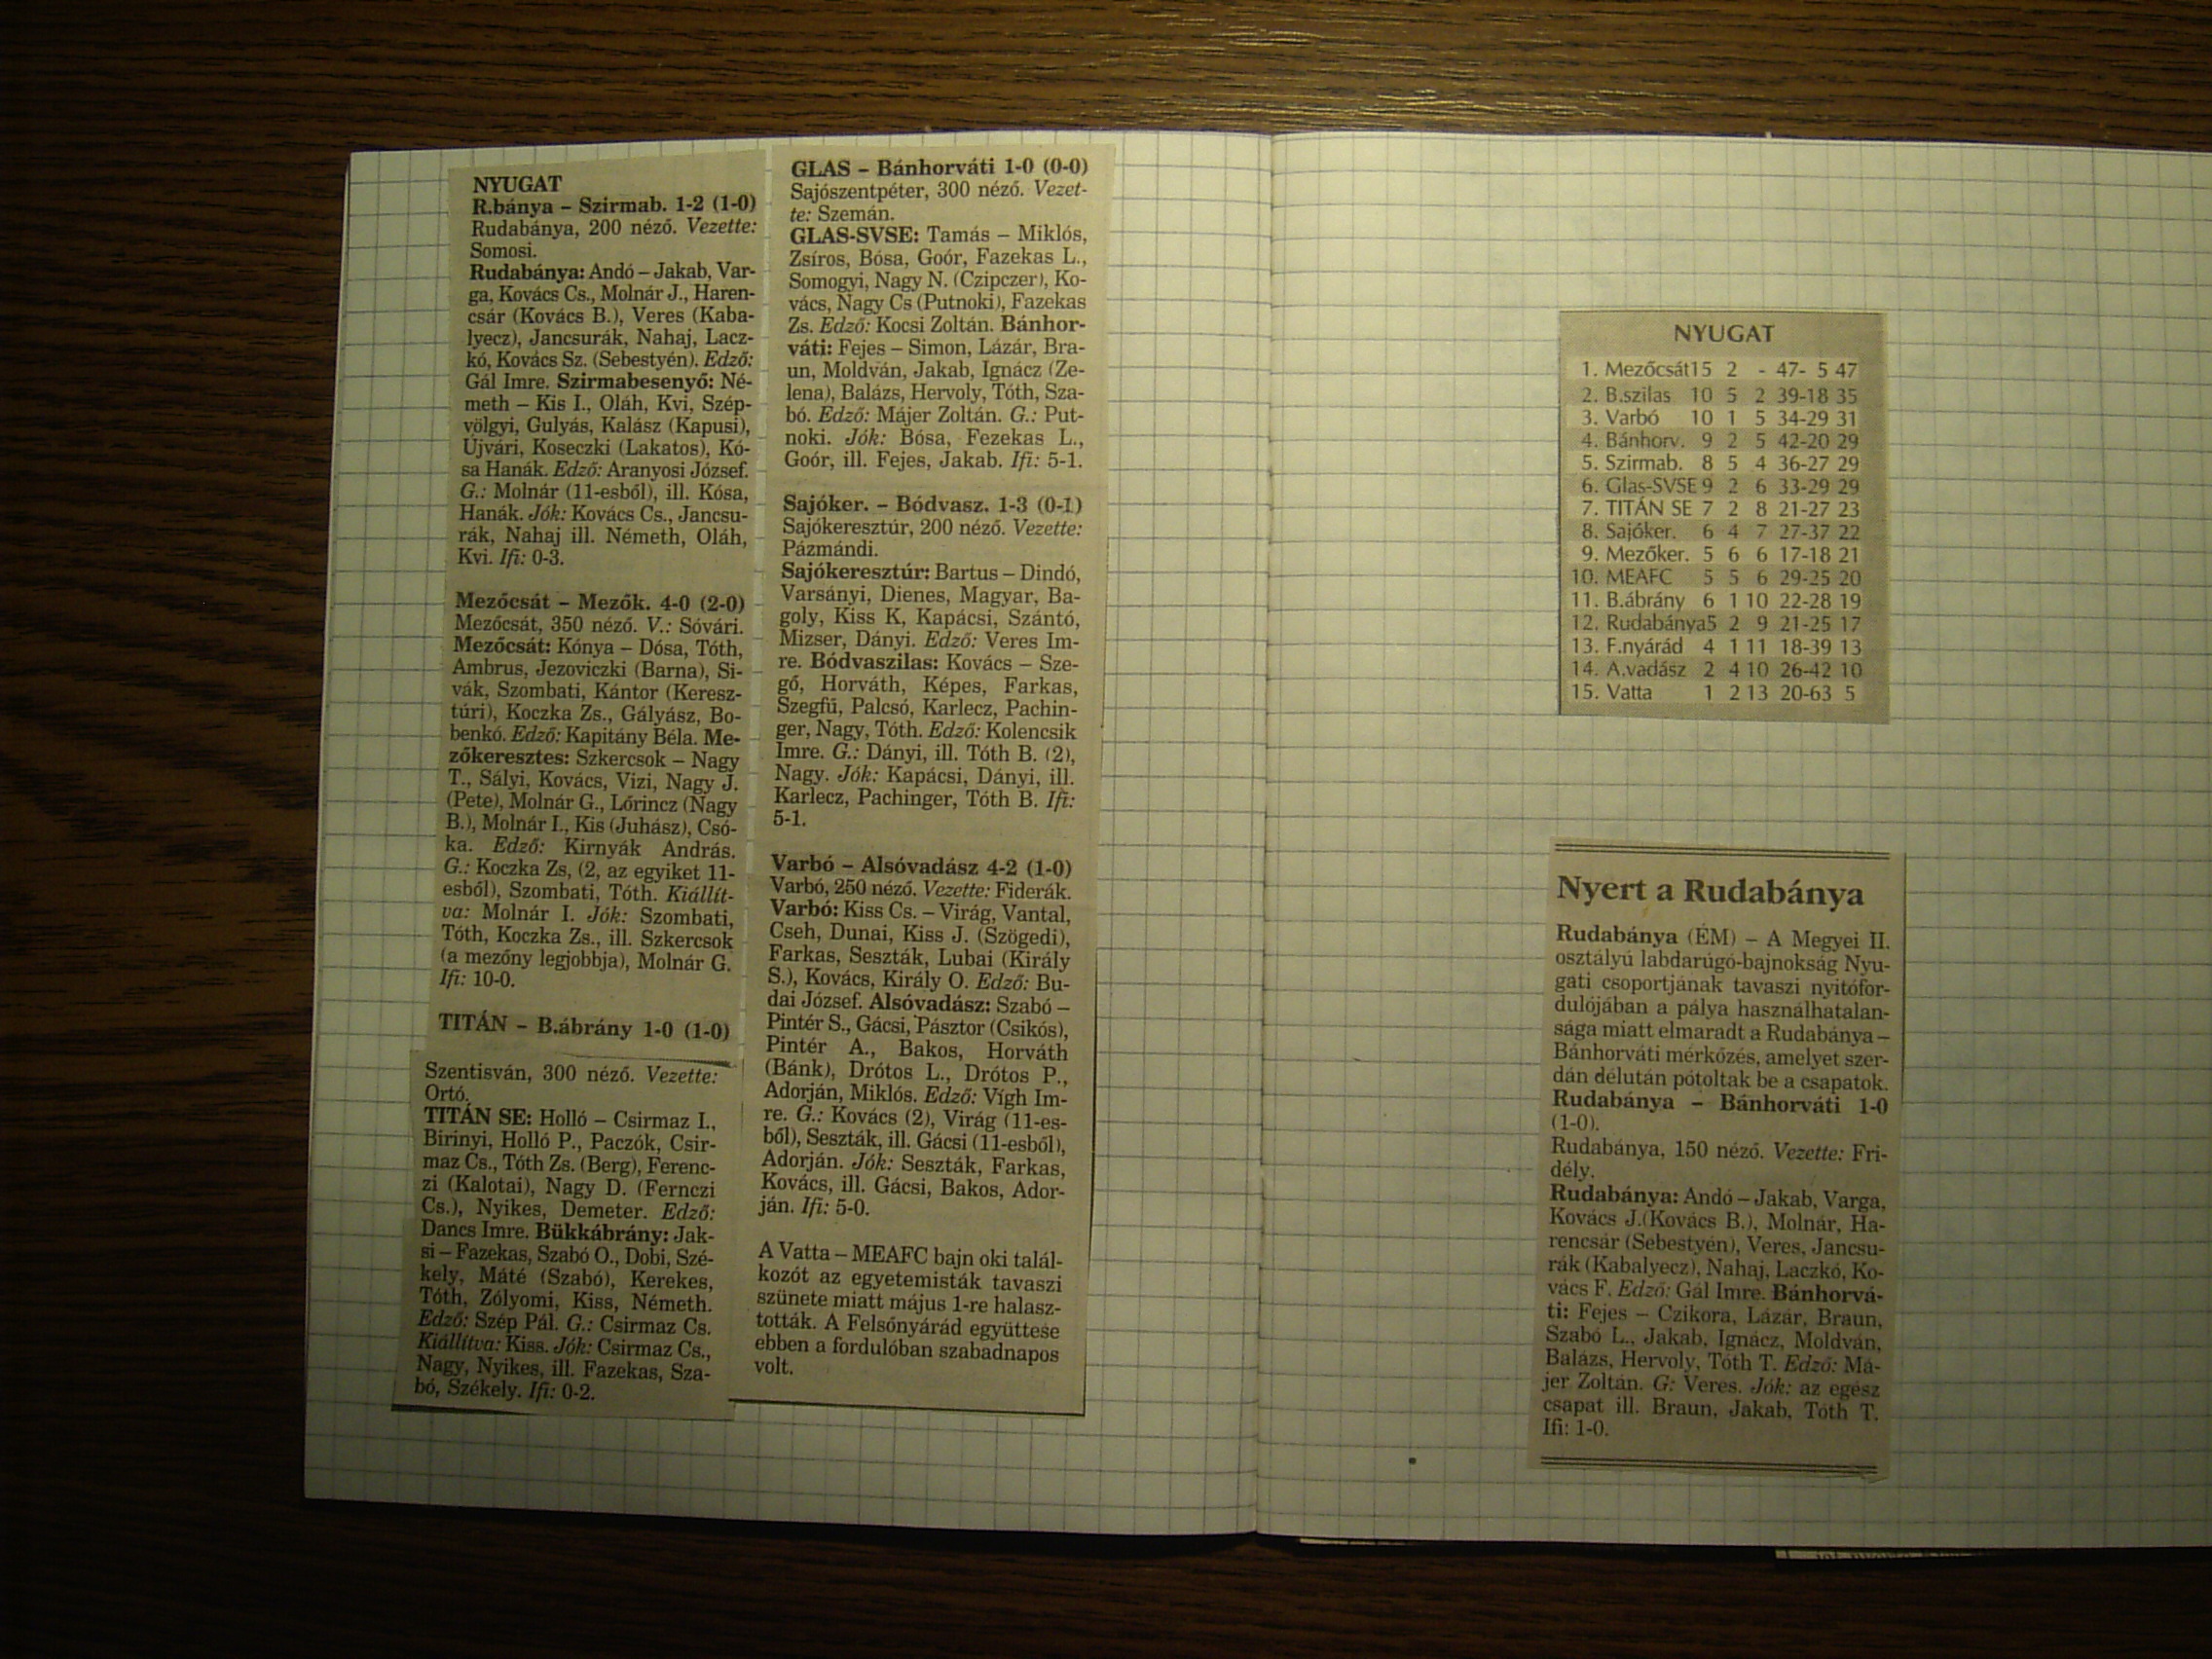 NYUGAT
R.bánya – Szirmab. 1-2 (1-0)
Rudabánya, 200 néző. Vezette:
Somosi.
Rudabánya: Andó – Jakab, Var-
ga, Kovács Cs., Molnár J., Haren-
csár (Kovács B.), Veres (Kaba-
lyecz), Jancsurák, Nahaj, Lacz-
kó, Kovács Sz. (Sebestyén). Edző:
Gál Imre. Szirmabesenyő: Né-
meth – Kis I., Oláh, Kvi, Szép-
völgyi, Gulyás, Kalász (Kapusi),
Ujvári, Koseczki (Lakatos), Kó-
sa Hanák. Edző: Aranyosi József.
G.: Molnár (11-esből), ill. Kósa,
Hanák. Jók: Kovács Cs., Jancsu-
rák, Nahaj ill. Németh, Oláh,
Kvi. Ifi: 0-3.
Mezőcsát – Mezők. 4-0 (2-0)
Mezőcsát, 350 néző. V.: Sóvári.
Mezőcsát: Kónya – Dósa, Tóth,
Ambrus, Jezoviczki (Barna), Si-
vák, Szombati, Kántor (Keresz-
túri), Koczka Zs., Gályász, Bo-
benkó. Edző: Kapitány Béla. Me-
zőkeresztes: Szkercsok – Nagy
T., Sályi, Kovács, Vizi, Nagy J.
(Pete), Molnár G., Lőrincz (Nagy
B.), Molnár I., Kis (Juhász), Csó-
ka. Edző: Kirnyák András.
G.: Koczka Zs, (2, az egyiket 11-
esből), Szombati, Tóth. Kiállít-
va: Molnár I. Jók: Szombati,
Tóth, Koczka Zs., ill. Szkercsok
(a mezőny legjobbja), Molnár G.
Ifi: 10-0.
TITÁN – B.ábrány 1-0 (1-0)
Szentisván, 300 néző. Vezette:
Ortó.
TITÁN SE: Holló – Csirmaz I.,
Birinyi, Holló P., Paczók, Csir-
maz Cs., Tóth Zs. (Berg), Ferenc-
zi (Kalotai), Nagy D. (Fernczi
Cs.), Nyikes, Demeter. Edző:
Dancs Imre. Bükkábrány: Jak-
si – Fazekas, Szabó O., Dobi, Szé-
kely, Máté (Szabó), Kerekes,
Tóth, Zólyomi, Kiss, Németh.
Edző: Szép Pál. G.: Csirmaz Cs.
Kiállítva: Kiss. Jók: Csirmaz Cs.,
Nagy, Nyikes, ill. Fazekas, Sza-
bó, Székely. Ifi: 0-2.
GLAS – Bánhorváti 1-0 (0-0)
Sajószentpéter, 300 néző. Vezet-
te: Szemán.
GLAS-SVSE: Tamás – Miklós,
Zsíros, Bósa, Goór, Fazekas L.,
Somogyi, Nagy N. (Czipczer), Ko-
vács, Nagy Cs (Putnoki), Fazekas
Zs. Edző: Kocsi Zoltán. Bánhor-
váti: Fejes – Simon, Lázár, Bra-
un, Moldván, Jakab, Ignácz (Ze-
lena), Balázs, Hervoly, Tóth, Sza-
bó. Edző: Májer Zoltán. G.: Put-
noki. Jók: Bósa, Fezekas L.,
Goór, ill. Fejes, Jakab. Ifi: 5-1.
Sajóker. – Bódvasz. 1-3 (0-1)
Sajókeresztúr, 200 néző. Vezette:
Pázmándi.
Sajókeresztúr: Bartus – Dindó,
Varsányi, Dienes, Magyar, Ba-
goly, Kiss K, Kapácsi, Szántó,
Mizser, Dányi. Edző: Veres Im-
re. Bódvaszilas: Kovács – Sze-
gő, Horváth, Képes, Farkas,
Szegfű, Palcsó, Karlecz, Pachin-
ger, Nagy, Tóth. Edző: Kolencsik
Imre. G.: Dányi, ill. Tóth B. (2),
Nagy. Jók: Kapácsi, Dányi, ill.
Karlecz, Pachinger, Tóth B. Ifi:
5-1.
Varbó – Alsóvadász 4-2 (1-0)
Varbó, 250 néző. Vezette: Fiderák.
Varbó: Kiss Cs. – Virág, Vantal,
Cseh, Dunai, Kiss J. (Szögedi),
Farkas, Seszták, Lubai (Király
S.), Kovács, Király O. Edző: Bu-
dai József. Alsóvadász: Szabó –
Pintér S., Gácsi, Pásztor (Csikós),
Pintér A., Bakos, Horváth
(Bánk), Drótos L., Drótos P.,
Adorján, Miklós. Edző: Vígh Im-
re. G.: Kovács (2), Virág (11-es-
ből), Seszták, ill. Gácsi (11-esből),
Adorján. Jók: Seszták, Farkas,
Kovács, ill. Gácsi, Bakos, Ador-
ján. Ifi: 5-0.
A Vatta – MEAFC bajn oki talál-
kozót az egyetemisták tavaszi
szünete miatt május 1-re halasz-
tották. A Felsőnyárád együttese
ebben a fordulóban szabadnapos
volt.
NYUGAT
1. Mezőcsát15 2 - 47- 5 47
2. B.szilas 10 5 2 39-18 35
3. Varbó 10 1 5 34-29 31
4. Bánhorv. 9 2 5 42-20 29
5. Szirmab. 8 5 4 36-27 29
6. Glas-SVSE 9 2 6 33-29 29
7. TITÁN SE 7 2 8 21-27 23
8. Sajóker. 6 4 7 27-37 22
9. Mezőker. 5 6 6 17-18 21
10. MEAFC 5 5 6 29-25 20
11. B.ábrány 6 1 10 22-28 19
12. Rudabánya5 2 9 21-25 17
13. F.nyárád 4 1 11 18-39 13
14. A.vadász 2 4 10 26-42 10
15. Vatta 1 2 13 20-63 5
Nyert a Rudabánya
Rudabánya (ÉM) – A Megyei II.
osztályú labdarúgó-bajnokság Nyu-
gati csoportjának tavaszi nyitófor-
dulójában a pálya használhatatlan-
sága miatt elmaradt a Rudabánya –
Bánhorváti mérkőzés, amelyet szer-
dán délután pótoltak be a csapatok.
Rudabánya – Bánhorváti 1-0
(1-0).
Rudabánya, 150 néző. Vezette: Fri-
dély.
Rudabánya: Andó – Jakab, Varga,
Kovács J.(Kovács B.), Molnár, Ha-
rencsár (Sebestyén), Veres, Jancsu-
rák (Kabalyecz), Nahaj, Laczkó, Ko-
vács F. Edző: Gál Imre. Bánhorvá-
ti: Fejes – Czikora, Lázár, Braun,
Szabó L., Jakab, Ignácz, Moldván,
Balázs, Hervoly, Tóth T. Edző: Má-
jer Zoltán. G: Veres. Jók: az egész
csapat ill. Braun, Jakab, Tóth T.
Ifi: 1-0.